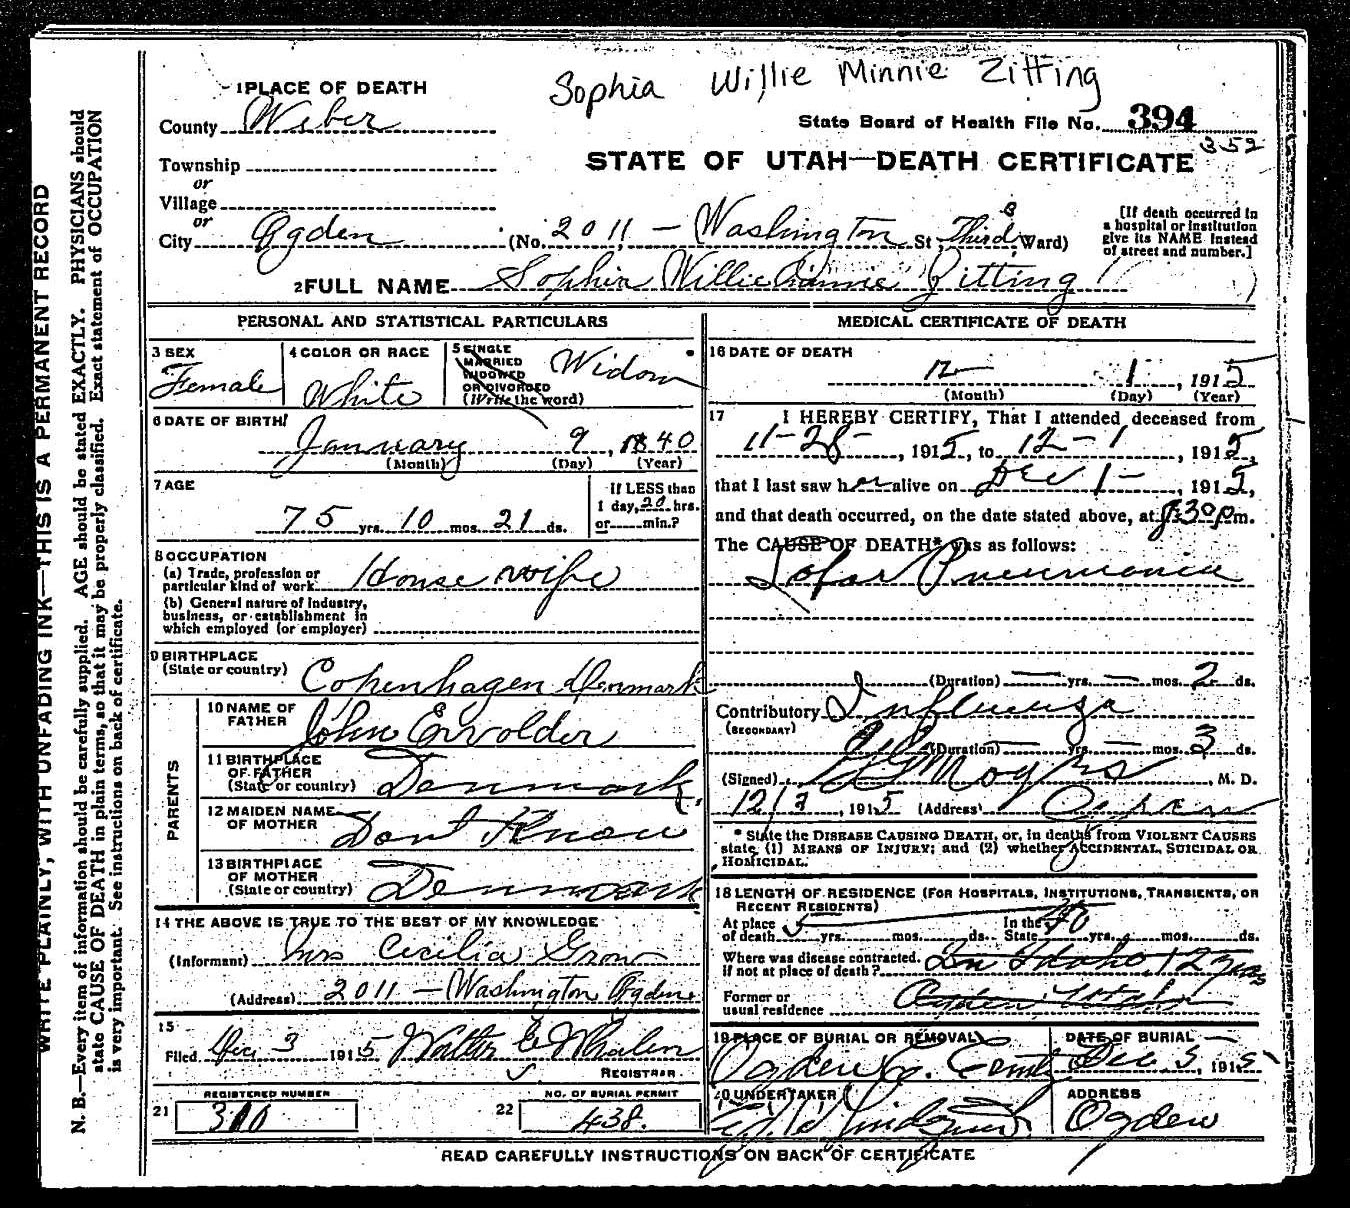 Sophia Willie Minnie Zitting
1 PLACE OF DEATH
County Weber
State Board of Health File No. 394
352
Township
or
Village
or
City Ogden
STATE OF UTAH—DEATH CERTIFICATE
(No. 2011 - Washington St; Third Ward)
[If death occurred in
a hospital or institution
give its NAME instead
of street and number.]
2 FULL NAME Sophia Willie Minnie Zitting
PERSONAL AND STATISTICAL PARTICULARS
3 SEX
Female
4 COLOR OR RACE
White
5 SINGLE
MARRIED
WIDOWED
OR DIVORCED
(Write the word)
Widow
6 DATE OF BIRTH
January 9, 1840
(Month) (Day) (Year)
7 AGE
75 yrs. 10 mos. 21 ds.
If LESS than
1 day, hrs.
or min.?
8 OCCUPATION
(a) Trade, profession or
particular kind of work House wife
(b) General nature of industry,
business, or establishment in
which employed (or employer)
9 BIRTHPLACE
(State or country) Copenhagen Denmark
PARENTS
10 NAME OF
FATHER John Ervolder
11 BIRTHPLACE
OF FATHER
(State or country) Denmark
12 MAIDEN NAME
OF MOTHER Dont Know
13 BIRTHPLACE
OF MOTHER
(State or country) Denmark
14 THE ABOVE IS TRUE TO THE BEST OF MY KNOWLEDGE
(Informant) Mrs Cecilia Grow
(Address) 2011 - Washington Ogden
15
Filed Dec 3 1915 Walter E Whalen
REGISTRAR
REGISTERED NUMBER
21 310
NO. OF BURIAL PERMIT
22 438.
MEDICAL CERTIFICATE OF DEATH
16 DATE OF DEATH
12 1, 1915
(Month) (Day) (Year)
17 I HEREBY CERTIFY, That I attended deceased from
11-28-, 1915, to 12-1, 1915,
that I last saw her alive on Dec 1-, 1915,
and that death occurred, on the date stated above, at 8:30 p.m.
The CAUSE OF DEATH* was as follows:
Lobar Pneumonia
(Duration) — yrs. — mos. 2 ds.
Contributory Influenza
(SECONDARY)
(Duration) — yrs. — mos. 3 ds.
(Signed) M. D.
12/2, 1915 (Address) Ogden
* State the DISEASE CAUSING DEATH, or, in deaths from VIOLENT CAUSES
state, (1) MEANS OF INJURY; and (2) whether ACCIDENTAL, SUICIDAL OR
HOMICIDAL.
18 LENGTH OF RESIDENCE (FOR HOSPITALS, INSTITUTIONS, TRANSIENTS, OR
RECENT RESIDENTS)
At place
of death 5 yrs. mos. ds. In the
State 40 yrs. mos. ds.
Where was disease contracted,
if not at place of death? In Idaho, 12 yrs
Former or
usual residence Ogden, Utah
19 PLACE OF BURIAL OR REMOVAL
Ogden
DATE OF BURIAL
Dec 5, 1915
20 UNDERTAKER
Lindquist
ADDRESS
Ogden
READ CAREFULLY INSTRUCTIONS ON BACK OF CERTIFICATE
WRITE PLAINLY, WITH UNFADING INK—THIS IS A PERMANENT RECORD
N. B.—Every item of information should be carefully supplied. AGE should be stated EXACTLY. PHYSICIANS should
state CAUSE OF DEATH in plain terms, so that it may be properly classified. Exact statement of OCCUPATION
is very important. See instructions on back of certificate.